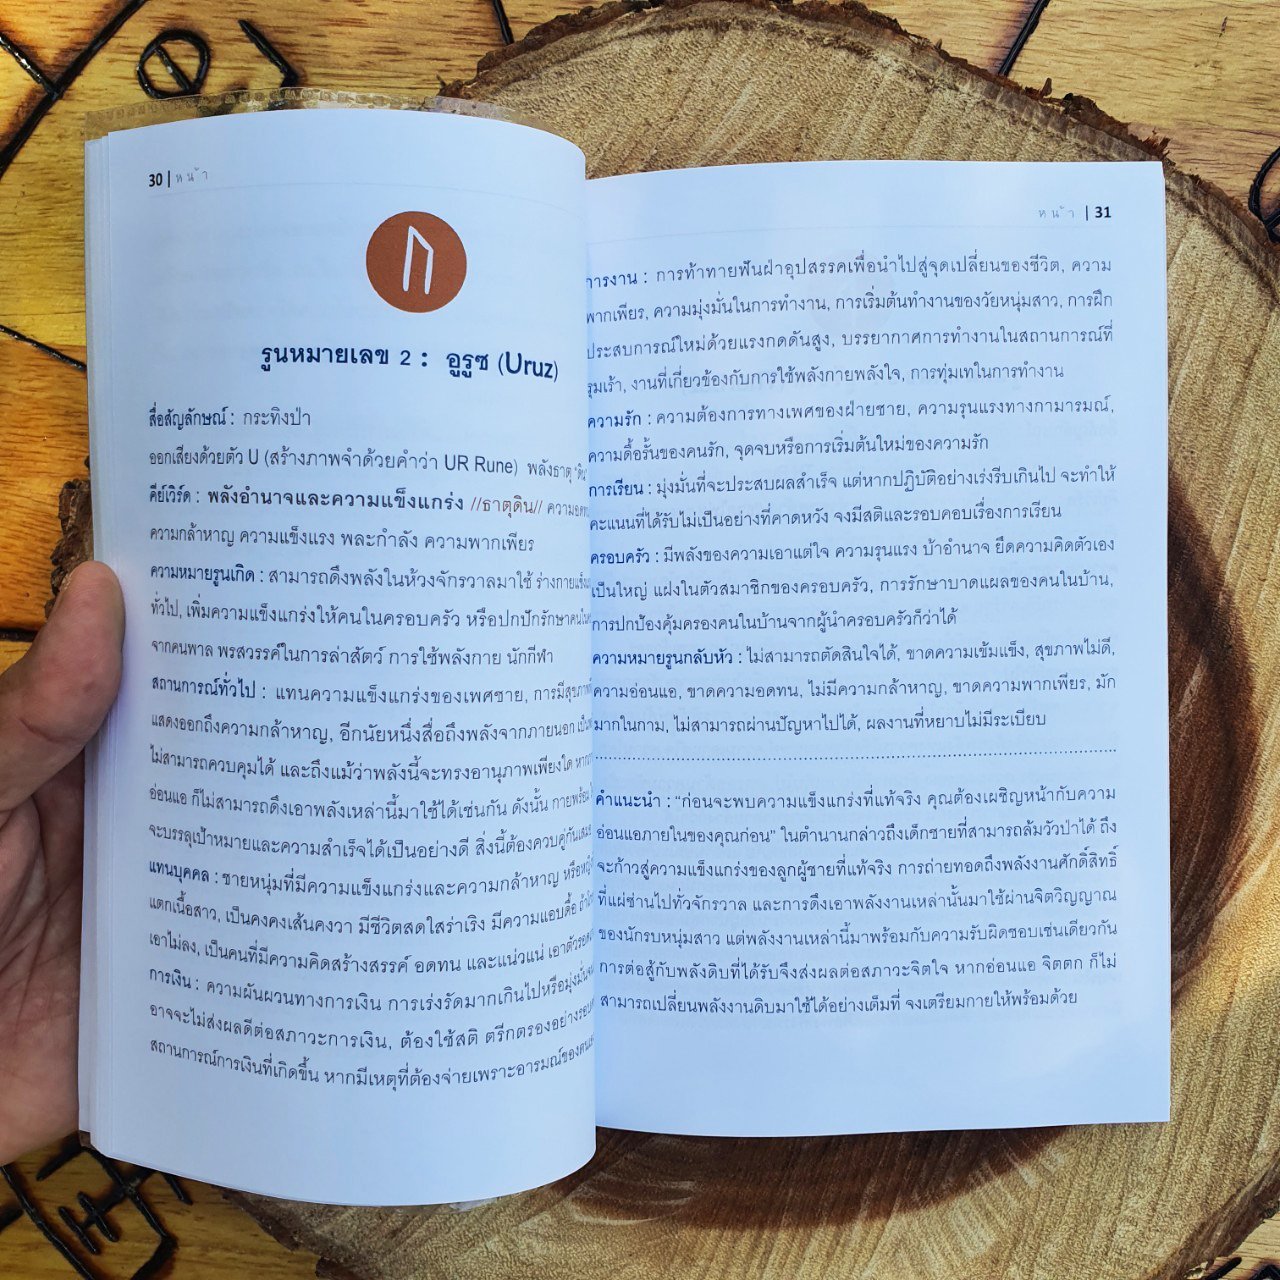 30 | ห น ้ า
รูนหมายเลข 2 : อูรูซ (Uruz)
สื่อสัญลักษณ์ : กระทิงป่า
ออกเสียงด้วยตัว U (สร้างภาพจำด้วยคำว่า UR Rune) พลังธาตุ "ดิน"
คีย์เวิร์ด : พลังอำนาจและความแข็งแกร่ง //ธาตุดิน//
ความกล้าหาญ ความแข็งแรง พละกำลัง ความพากเพียร
ความหมายรูนเกิด : สามารถดึงพลังในห้วงจักรวาลมาใช้ ร่างกายแข็งแ
ทั่วไป, เพิ่มความแข็งแกร่งให้คนในครอบครัว หรือปกปักรักษาคนใน
จากคนพาล พรสวรรค์ในการล่าสัตว์ การใช้พลังกาย นักกีฬา
สถานการณ์ทั่วไป : แทนความแข็งแกร่งของเพศชาย, การมีสุขภาพ
แสดงออกถึงความกล้าหาญ, อีกนัยหนึ่งสื่อถึงพลังจากภายนอก
ไม่สามารถควบคุมได้ และถึงแม้ว่าพลังนี้จะทรงอานุภาพเพียงใด
อ่อนแอ ก็ไม่สามารถดึงเอาพลังเหล่านี้มาใช้ได้เช่นกัน ดังนั้น กายพร้อม
จะบรรลุเป้าหมายและความสำเร็จได้เป็นอย่างดี สิ่งนี้ต้องควบคู่กันเสมอ
แทนบุคคล : ชายหนุ่มที่มีความแข็งแกร่งและความกล้าหาญ หรือหญิง
แตกเนื้อสาว, เป็นคงคงเส้นคงวา มีชีวิตสดใสร่าเริง มีความแอบดื้อ
เอาไม่ลง, เป็นคนที่มีความคิดสร้างสรรค์ อดทน และแน่วแน่ เอาตัวรอด
การเงิน : ความผันผวนทางการเงิน การเร่งรัดมากเกินไปหรือมุ่งมั่น
อาจจะไม่ส่งผลดีต่อสภาวะการเงิน, ต้องใช้สติ ตรึกตรองอย่างรอบค
สถานการณ์การเงินที่เกิดขึ้น หากมีเหตุที่ต้องจ่ายเพราะอารมณ์ของตนเอ
ห น ้ า | 31
การงาน : การท้าทายฟันฝ่าอุปสรรคเพื่อนำไปสู่จุดเปลี่ยนของชีวิต, ความ
พากเพียร, ความมุ่งมั่นในการทำงาน, การเริ่มต้นทำงานของวัยหนุ่มสาว, การฝึก
ประสบการณ์ใหม่ด้วยแรงกดดันสูง, บรรยากาศการทำงานในสถานการณ์ที่
รุมเร้า, งานที่เกี่ยวข้องกับการใช้พลังกายพลังใจ, การทุ่มเทในการทำงาน
ความรัก : ความต้องการทางเพศของฝ่ายชาย, ความรุนแรงทางกามารมณ์,
ความดื้อรั้นของคนรัก, จุดจบหรือการเริ่มต้นใหม่ของความรัก
การเรียน : มุ่งมั่นที่จะประสบผลสำเร็จ แต่หากปฏิบัติอย่างเร่งรีบเกินไป จะทำให้
คะแนนที่ได้รับไม่เป็นอย่างที่คาดหวัง จงมีสติและรอบคอบเรื่องการเรียน
ครอบครัว : มีพลังของความเอาแต่ใจ ความรุนแรง บ้าอำนาจ ยึดความคิดตัวเอง
เป็นใหญ่ แฝงในตัวสมาชิกของครอบครัว, การรักษาบาดแผลของคนในบ้าน,
การปกป้องคุ้มครองคนในบ้านจากผู้นำครอบครัวก็ว่าได้
ความหมายรูนกลับหัว : ไม่สามารถตัดสินใจได้, ขาดความเข้มแข็ง, สุขภาพไม่ดี,
ความอ่อนแอ, ขาดความอดทน, ไม่มีความกล้าหาญ, ขาดความพากเพียร, มัก
มากในกาม, ไม่สามารถผ่านปัญหาไปได้, ผลงานที่หยาบไม่มีระเบียบ
คำแนะนำ : “ก่อนจะพบความแข็งแกร่งที่แท้จริง คุณต้องเผชิญหน้ากับความ
อ่อนแอภายในของคุณก่อน” ในตำนานกล่าวถึงเด็กชายที่สามารถล้มวัวป่าได้ ถึง
จะก้าวสู่ความแข็งแกร่งของลูกผู้ชายที่แท้จริง การถ่ายทอดถึงพลังงานศักดิ์สิทธิ์
ที่แผ่ซ่านไปทั่วจักรวาล และการดึงเอาพลังงานเหล่านั้นมาใช้ผ่านจิตวิญญาณ
ของนักรบหนุ่มสาว แต่พลังงานเหล่านี้มาพร้อมกับความรับผิดชอบเช่นเดียวกัน
การต่อสู้กับพลังดิบที่ได้รับจึงส่งผลต่อสภาวะจิตใจ หากอ่อนแอ จิตตก ก็ไม่
สามารถเปลี่ยนพลังงานดิบมาใช้ได้อย่างเต็มที่ จงเตรียมกายให้พร้อมด้วย